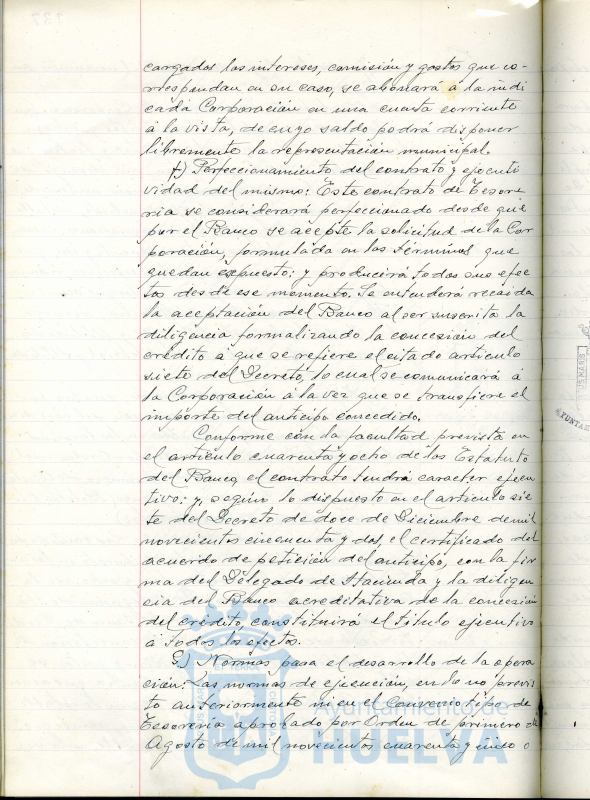 cargados los intereses, comisión y gastos que co-
rrespondan en su caso, se abonará a la indi
cada Corporación en una cuenta corriente
á la vista, de cuyo saldo podrá disponer
libremente la representación municipal.
f) Perfeccionamiento del contrato y ejecuti
vidad del mismo: Este contrato de Tesore
ria se considerará perfeccionado desde que
por el Banco se acepte la solicitud de la Cor
poración, formulada en los términos que
quedan expuesto: y producirá todos sus efec
tos desde ese momento. Se entenderá recaida
la aceptación del Banco al ser suscrita la
diligencia formalizando la concesión del
crédito á que se refiere el citado articulo
siete del Decreto, lo cual se comunicará á
la Corporación á la vez que se transfiere el
importe del anticipo concedido.
Conforme con la facultad prevista en
el articulo cuarenta y ocho de los Estatuto
del Banco, el contrato tendrá caracter ejecu
tivo: y, según lo dispuesto en el articulo sie
te del Decreto de doce de Diciembre de mil
novecientos cincuenta y dos, el certificado del
acuerdo de petición del anticipo, con la fir
ma del Delegado de Hacienda y la diligen
cia del Banco acreditativa de la concesión
del crédito, constituirá el titulo ejecutivo
á todos los efectos.
g) Normas para el desarrollo de la opera
ción: Las normas de ejecución, en lo no previs
to anteriormente ni en el Convenio tipo de
Tesorería aprobado por Orden de primero de
Agosto de mil novecientos cuarenta y cinco o
Ayuntamiento de
HUELVA